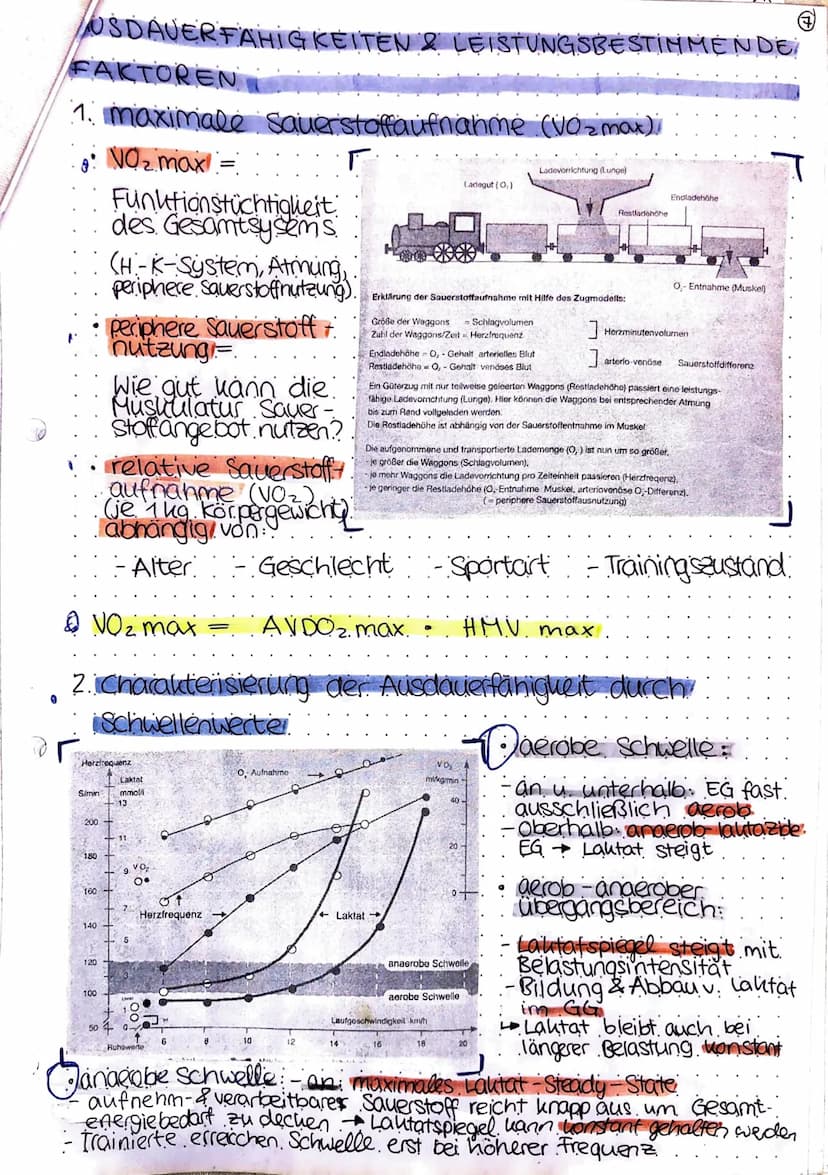 7
AUSDAUERFÄHIGKEITEN & LEISTUNGSBESTIMMENDE
FAKTOREN
1. maximale Sauerstoffaufnahme (VO2max)
• VO2max =
Funktionstüchtigkeit
des Gesamtsysems
(H-K-System, Atmung,
periphere Sauerstoffnutzung)
• periphere Sauerstoff-
nutzung =
Wie gut kann die
Muskulatur Sauer-
stoffangebot nutzen?
• relative Sauerstoff-
aufnahme (VO2)
(je 1kg Körpergewicht)
abhängig von:
Ladevorrichtung (Lunge)
Ladegut (O2)
Endladehöhe
Restladehöhe
O2- Entnahme (Muskel)
Erklärung der Sauerstoffaufnahme mit Hilfe des Zugmodells:
Größe der Waggons = Schlagvolumen
Zahl der Waggons/Zeit = Herzfrequenz
Herzminutenvolumen
Endladehöhe = O2 - Gehalt arterielles Blut
Restladehöhe = O2 - Gehalt venöses Blut
arterio-venöse Sauerstoffdifferenz
Ein Güterzug mit nur teilweise geleerten Waggons (Restladehöhe) passiert eine leistungs-
fähige Ladevorrichtung (Lunge). Hier können die Waggons bei entsprechender Atmung
bis zum Rand vollgeladen werden.
Die Restladehöhe ist abhängig von der Sauerstoffentnahme im Muskel
Die aufgenommene und transportierte Lademenge (O2) ist nun um so größer,
- je größer die Waggons (Schlagvolumen),
- je mehr Waggons die Ladevorrichtung pro Zeiteinheit passieren (Herzfrequenz),
- je geringer die Restladehöhe (O2-Entnahme Muskel, arteriovenöse O2-Differenz).
(= periphere Sauerstoffausnutzung)
- Alter - Geschlecht - Sportart - Trainingszustand
VO2max = AVDO2max • HMV max
2. Charakterisierung der Ausdauerfähigkeit durch
Schwellenwerte
Herzfrequenz
S/min
Laktat
mmol/l
O2 Aufnahme
VO2
ml/kg/min
200
180
160
140
120
100
50
13
11
9
7
5
3
0
40
20
0
VO2
Herzfrequenz
Laktat
anaerobe Schwelle
aerobe Schwelle
Laufgeschwindigkeit km/h
Ruhewerte
6 8 10 12 14 16 18 20
• aerobe Schwelle:
- an u. unterhalb EG fast
ausschließlich aerob
- Oberhalb anaerob-laktazide
EG → Laktat steigt
• aerob-anaerober
Übergangsbereich:
- Laktatspiegel steigt mit
Belastungsintensität
- Bildung & Abbau v. Laktat
im GG
↳ Laktat bleibt auch bei
längerer Belastung konstant
• anaerobe Schwelle: - an maximales Laktat-Steady-State
- aufnehm- & verarbeitbarer Sauerstoff reicht knapp aus um Gesamt-
energiebedarf zu decken → Laktatspiegel kann konstant gehalten werden
- Trainierte erreichen Schwelle erst bei höherer Frequenz